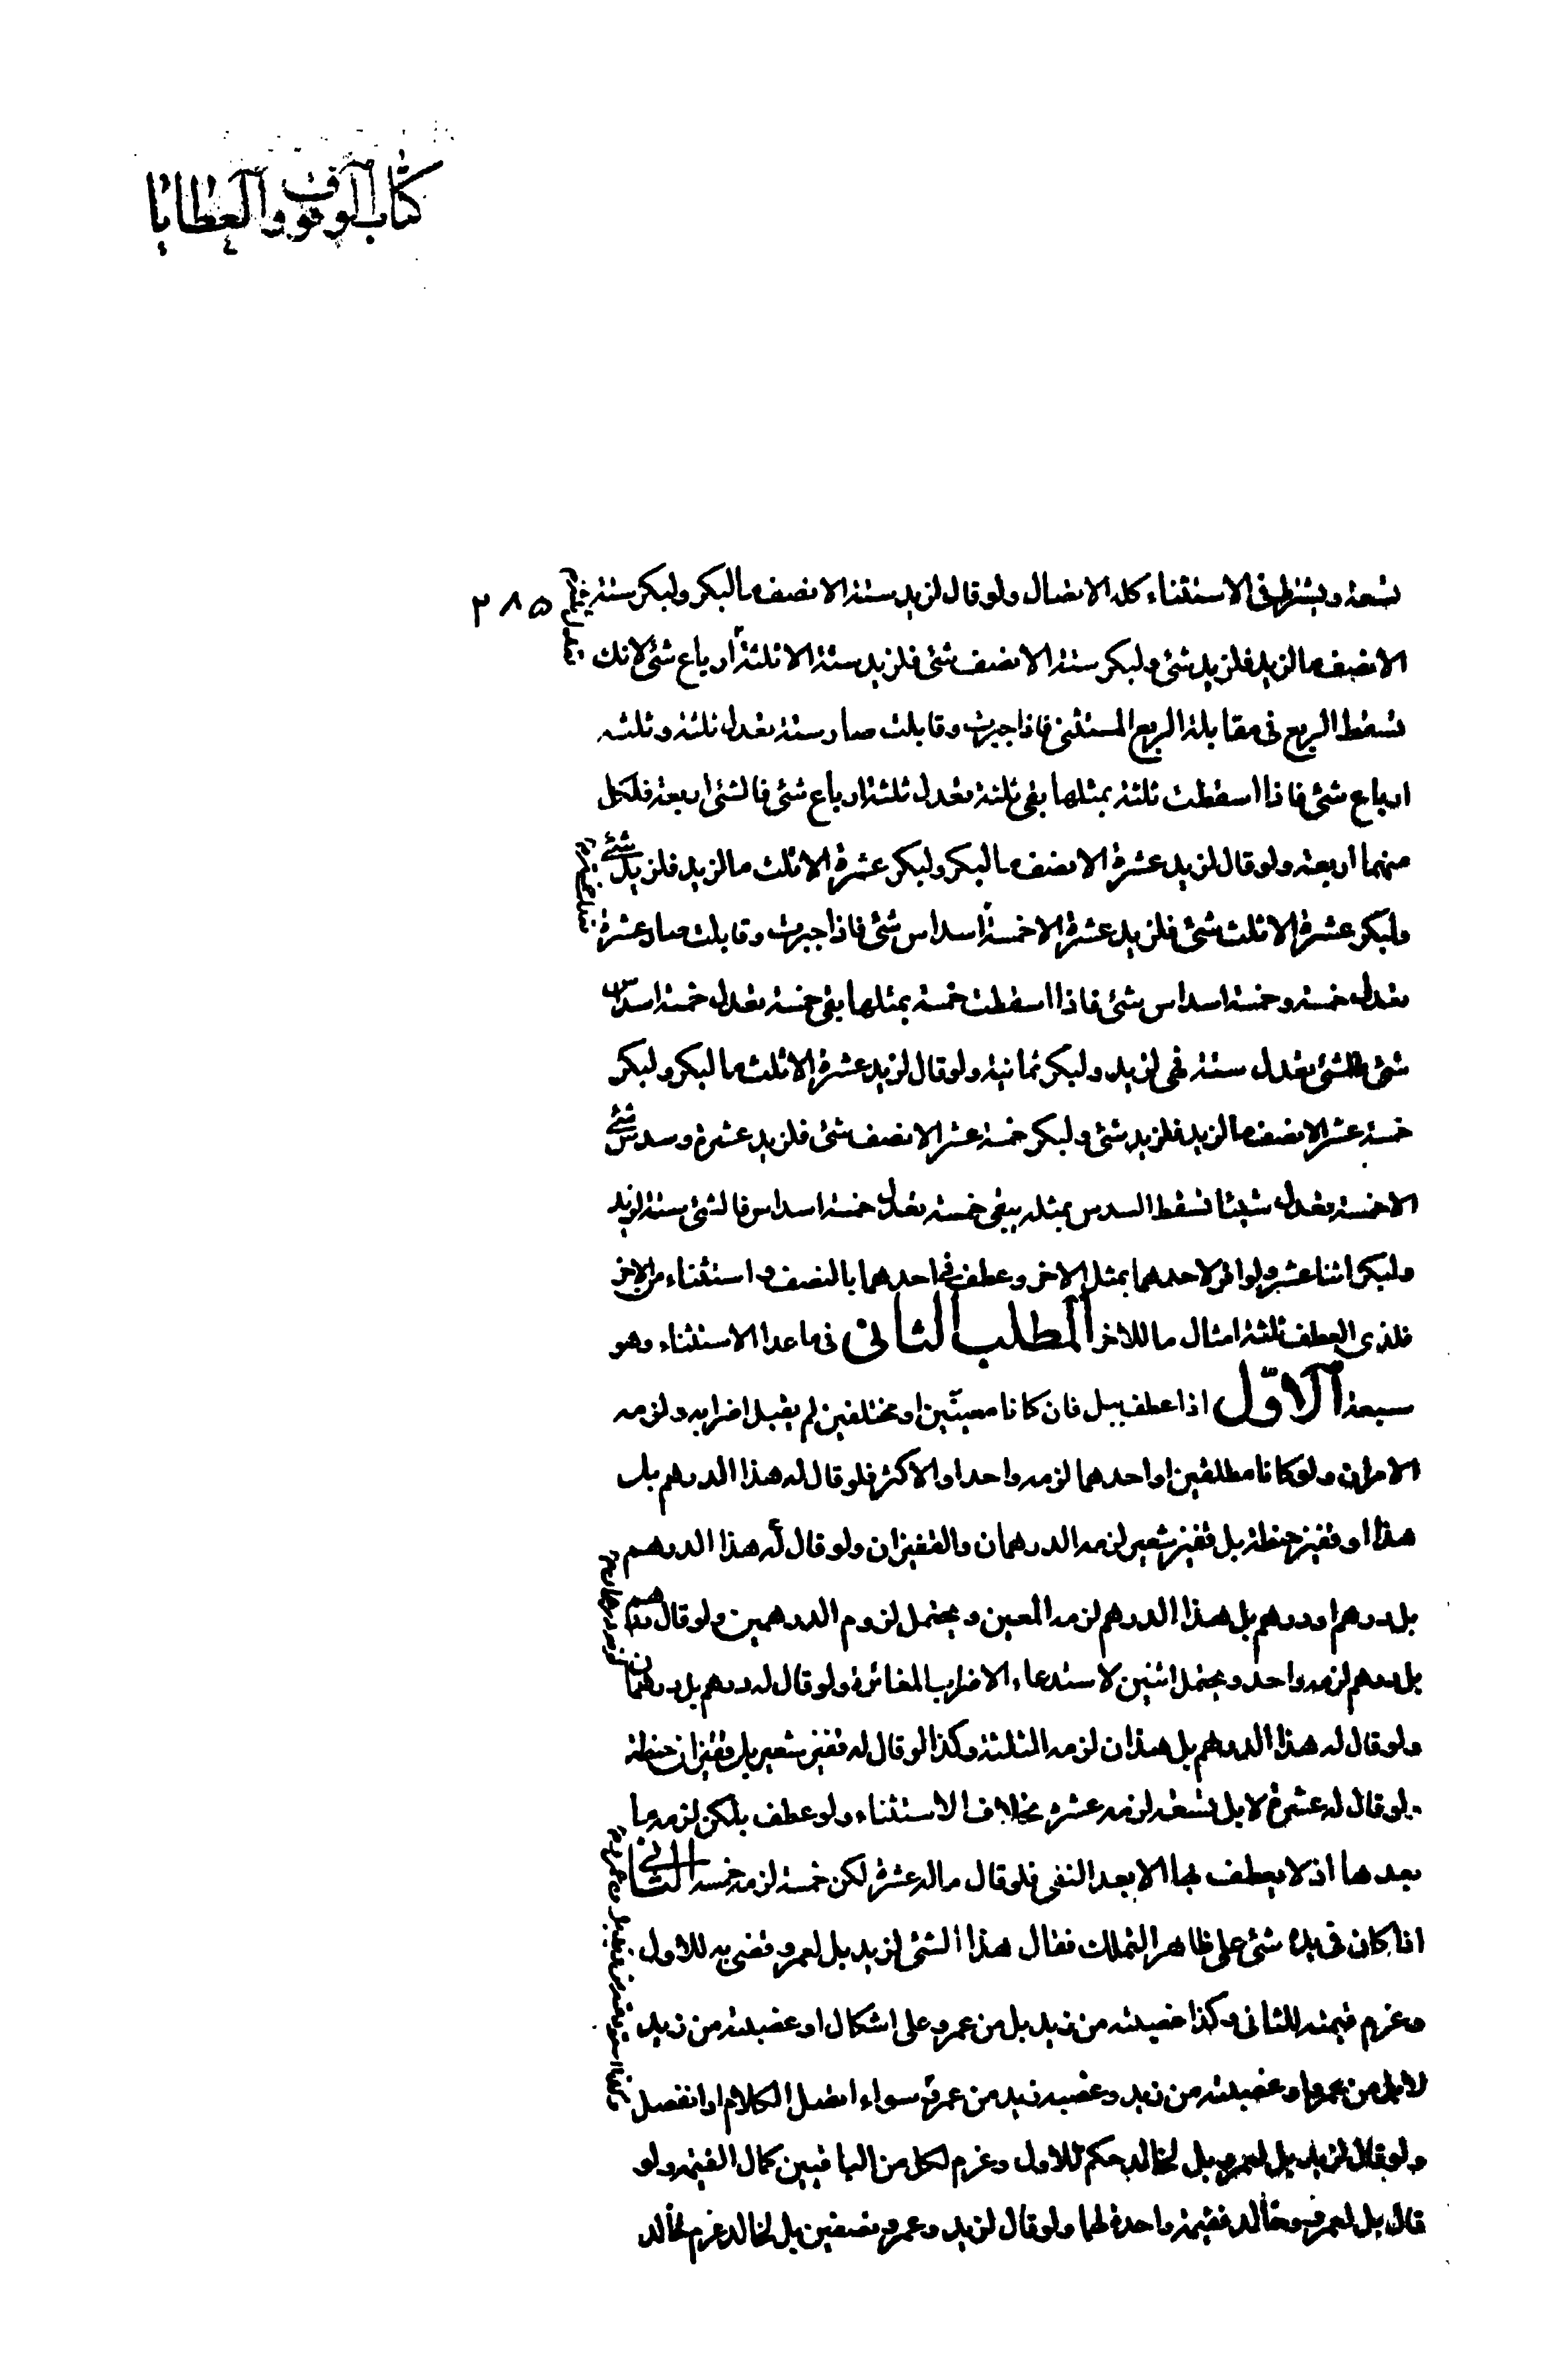 كتاب الوقوف والعطايا
٢٨٥
تسعة ويشترط في الاستثناء كله الاتصال ولو قال لزيد ستة الا نصف ما لبكر ولبكر ستة
الا نصف ما لزيد فلزيد شئ ولبكر ستة الا نصف شئ فلزيد ستة الا ثلثة أرباع شئ لانك
تسقط الربع في مقابلة الربع المستثنى فاذا جبرت وقابلت صار ستة تعدل ثلثة وثلثة
ارباع شئ فاذا اسقطت ثلثة بمثلها بقى ثلثة تعدل ثلثة ارباع شئ فالشئ اربعة فلكل
منهما أربعة ولو قال لزيد عشرة الا نصف ما لبكر ولبكر عشرة الا ثلث ما لزيد فلزيد شئ
ولبكر عشرة الا ثلث شئ فلزيد عشرة الا خمسة أسداس شئ فاذا جبرت وقابلت صار عشرة
تعدل خمسة وخمسة اسداس شئ فاذا اسقطت خمسة بمثلها بقى خمسة تعدل خمسة اسداس
شئ فالشئ يعدل ستة فهى لزيد ولبكر ثمانية ولو قال لزيد عشرة الا ثلث ما لبكر ولبكر
خمسة عشر الا نصف ما لزيد فلزيد شئ ولبكر خمسة عشر الا نصف شئ فلزيد عشرة وسدس شئ
الا خمسة تعدل شيئا تسقط السدس بمثله يبقى خمسة تعدل خمسة اسداس فالشئ ستة لزيد
ولبكر اثنا عشر ولو اقر لاحدهما بمثل الاخر وعطف في احدهما بالنصف و استثناه من الاخر
فلذى العطف ثلثة امثال ما للاخر المطلب الثانى فى ما عدا الاستثناء وهو
سبعة الاوّل اذا عطف ببل فان كانا معيّنين او مختلفين لم يقبل اضرابه ولزمه
الامران ولو كانا مطلقين او احدهما لزمه واحد او الاكثر فلو قال له هذا الدرهم بل
هذا او قفيز حنطة بل قفيز شعير لزمه الدرهمان والقفيزان ولو قال له هذا الدرهم
بل درهم او درهم بل هذا الدرهم لزمه المعين و يحتمل لزوم الدرهمين ولو قال درهم
بل درهم لزمه واحد ويحتمل اثنين لاستدعاء الاضراب المغائرة ولو قال له درهم بل درهمان
ولو قال له هذا الدرهم بل هذان لزمه الثلثة وكذا لو قال له قفيز شعير بل قفيزان حنطة
ولو قال له عشرة لا بل تسعة لزمه عشرة بخلاف الاستثناء ولو عطف بلكن لزمه ما
بعدها اذ لا يعطف بها الا بعد النفى فلو قال ماله عشرة لكن خمسة لزمه خمسة الثانى
اذا كان فى يده شئ على ظاهر التملك فقال هذا الشئ لزيد بل لعمرو قضى به للاول
وغرم قيمته للثانى وكذا غصبته من زيد بل من عمرو على اشكال او غصبته من زيد
لا بل من عمرو او غصبته من زيد وغصبه زيد من عمرو سواء اتصل الكلام او انفصل
ولو قال لزيد بل لعمرو بل لخالد حكم للاول وغرم لكل من الباقيين كمال القيمة ولو
قال بل لعمرو وخالد فقيمة واحدة لهما ولو قال لزيد وعمرو نصفين بل لخالد غرم لخالد